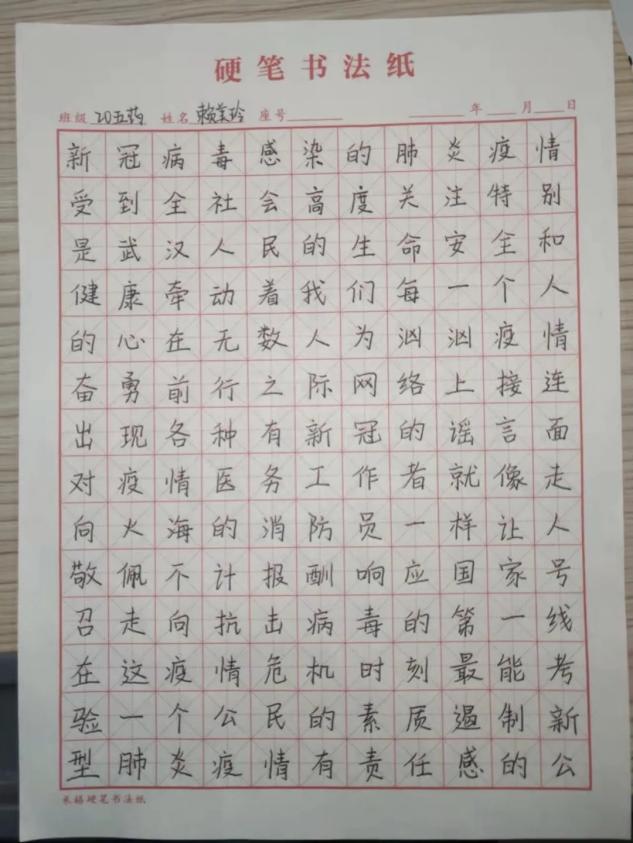 硬笔书法纸
班级 20五药 姓名 赖美玲 座号 年 月 日
新冠病毒感染的肺炎疫情
受到全社会高度关注特别
是武汉人民的生命安全和
健康牵动着我们每一个人
的心在无数人为汹汹疫情
奋勇前行之际网络上接连
出现各种有新冠的谣言面
对疫情医务工作者就像走
向火海的消防员一样让人
敬佩不计报酬响应国家号
召走向抗击病毒的第一线
在这疫情危机时刻最能考
验一个公民的素质遏制新
型肺炎疫情有责任感的公
硬笔书法纸